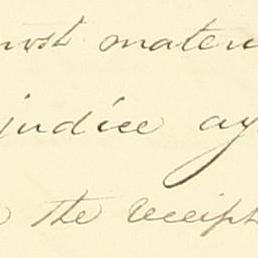 most mater
judice ag
the receipt